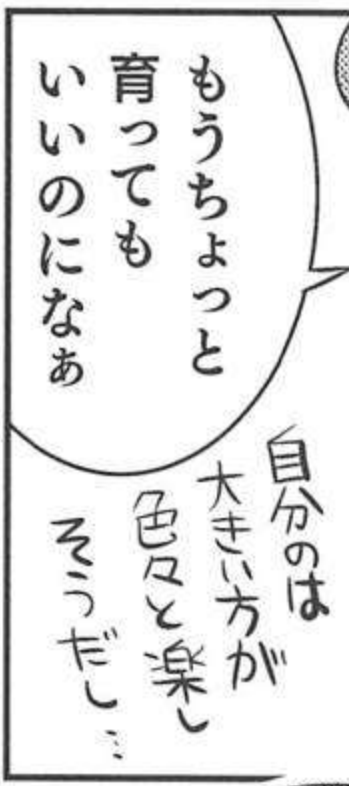 もうちょっと
育っても
いいのになぁ
自分のは
大きい方が
色々と楽し
そうだし…